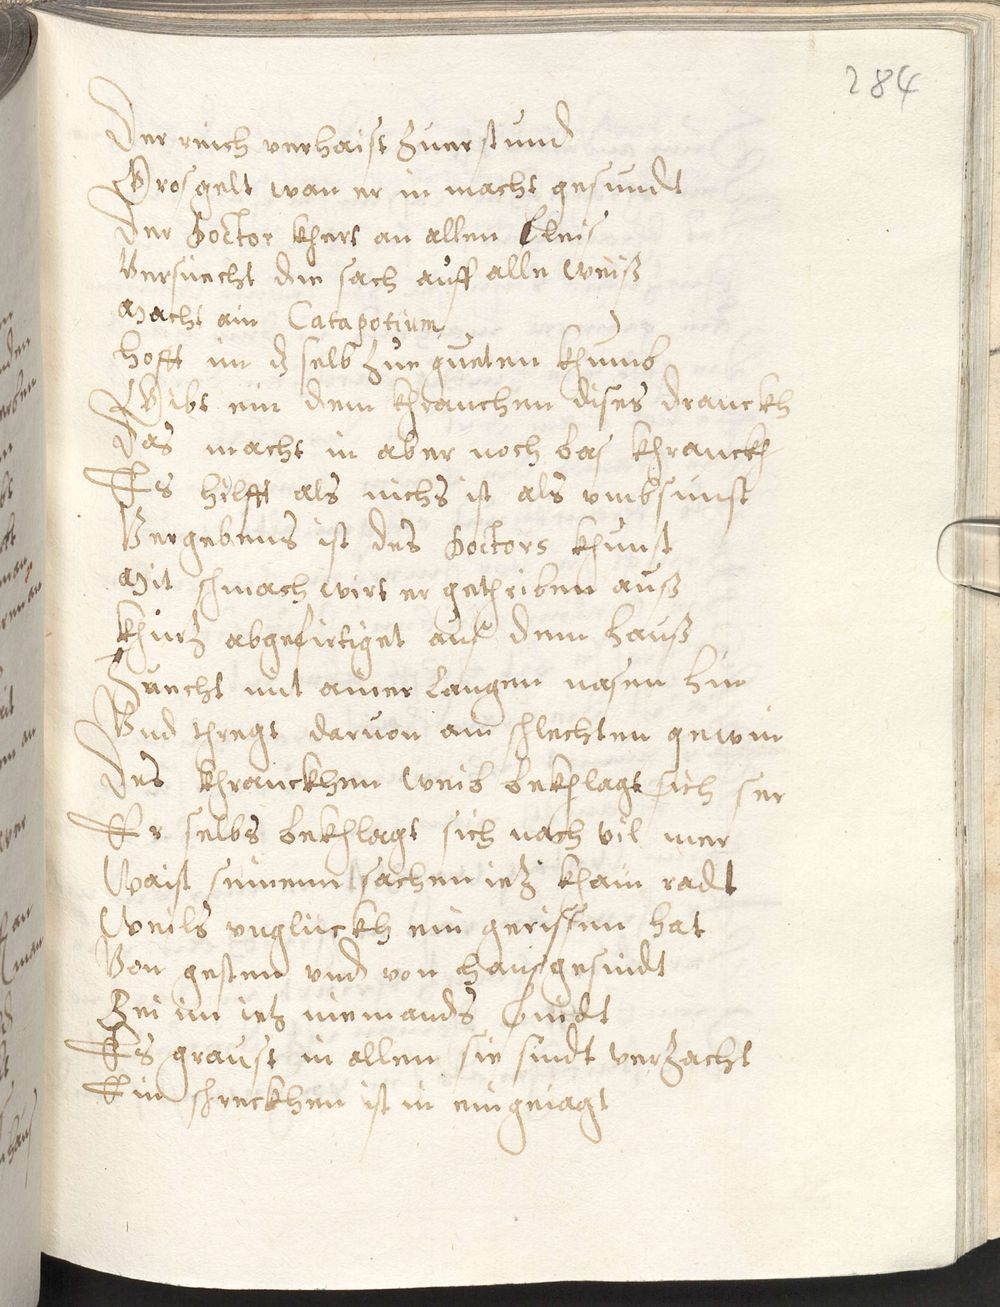 284
Der reich verhaist zuerstund
Gros gelt wan er in macht gesundt
Der Doctor khert an allen fleis
Versuecht die sach auff alle weiß
Macht ain Catapotium
hofft im dz selb zue gueten khumb
Gibt ein dem khranchen dises dranckh
Das macht in aber noch bas khranckh
Es hilfft als nichs ist als vmbsunst
Vergebens ist des Doctors khunst
Mit schmach wirt er gethriben auß
khurz abgefirtiget aus dem hauß
Zuecht mit ainer langen nasen hin
Vnd thregt daruon ain schlechten gewin
Des khranckhen weib bekhlagt sich ser
Er selbs bekhlagt sich nach vil mer
Waist seinenn sachen iez khain radt
Weils vnglückh ein gerissen hat
Von gesten vnd von hausgesindt
Bei im ietz niemands findt
Es graust in allen sie sindt verzacht
Ein schreckhen ist in eingeiagt